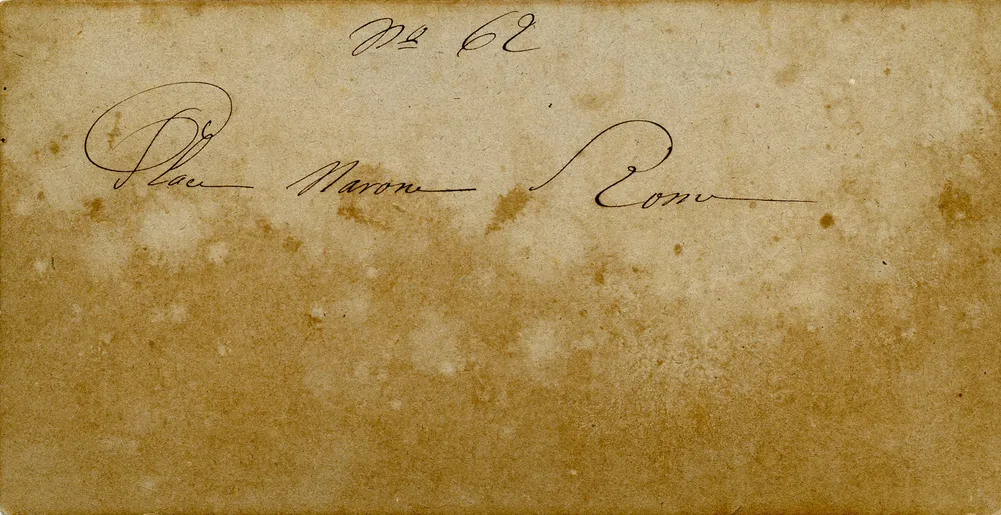 No 62
Place Narone Rome